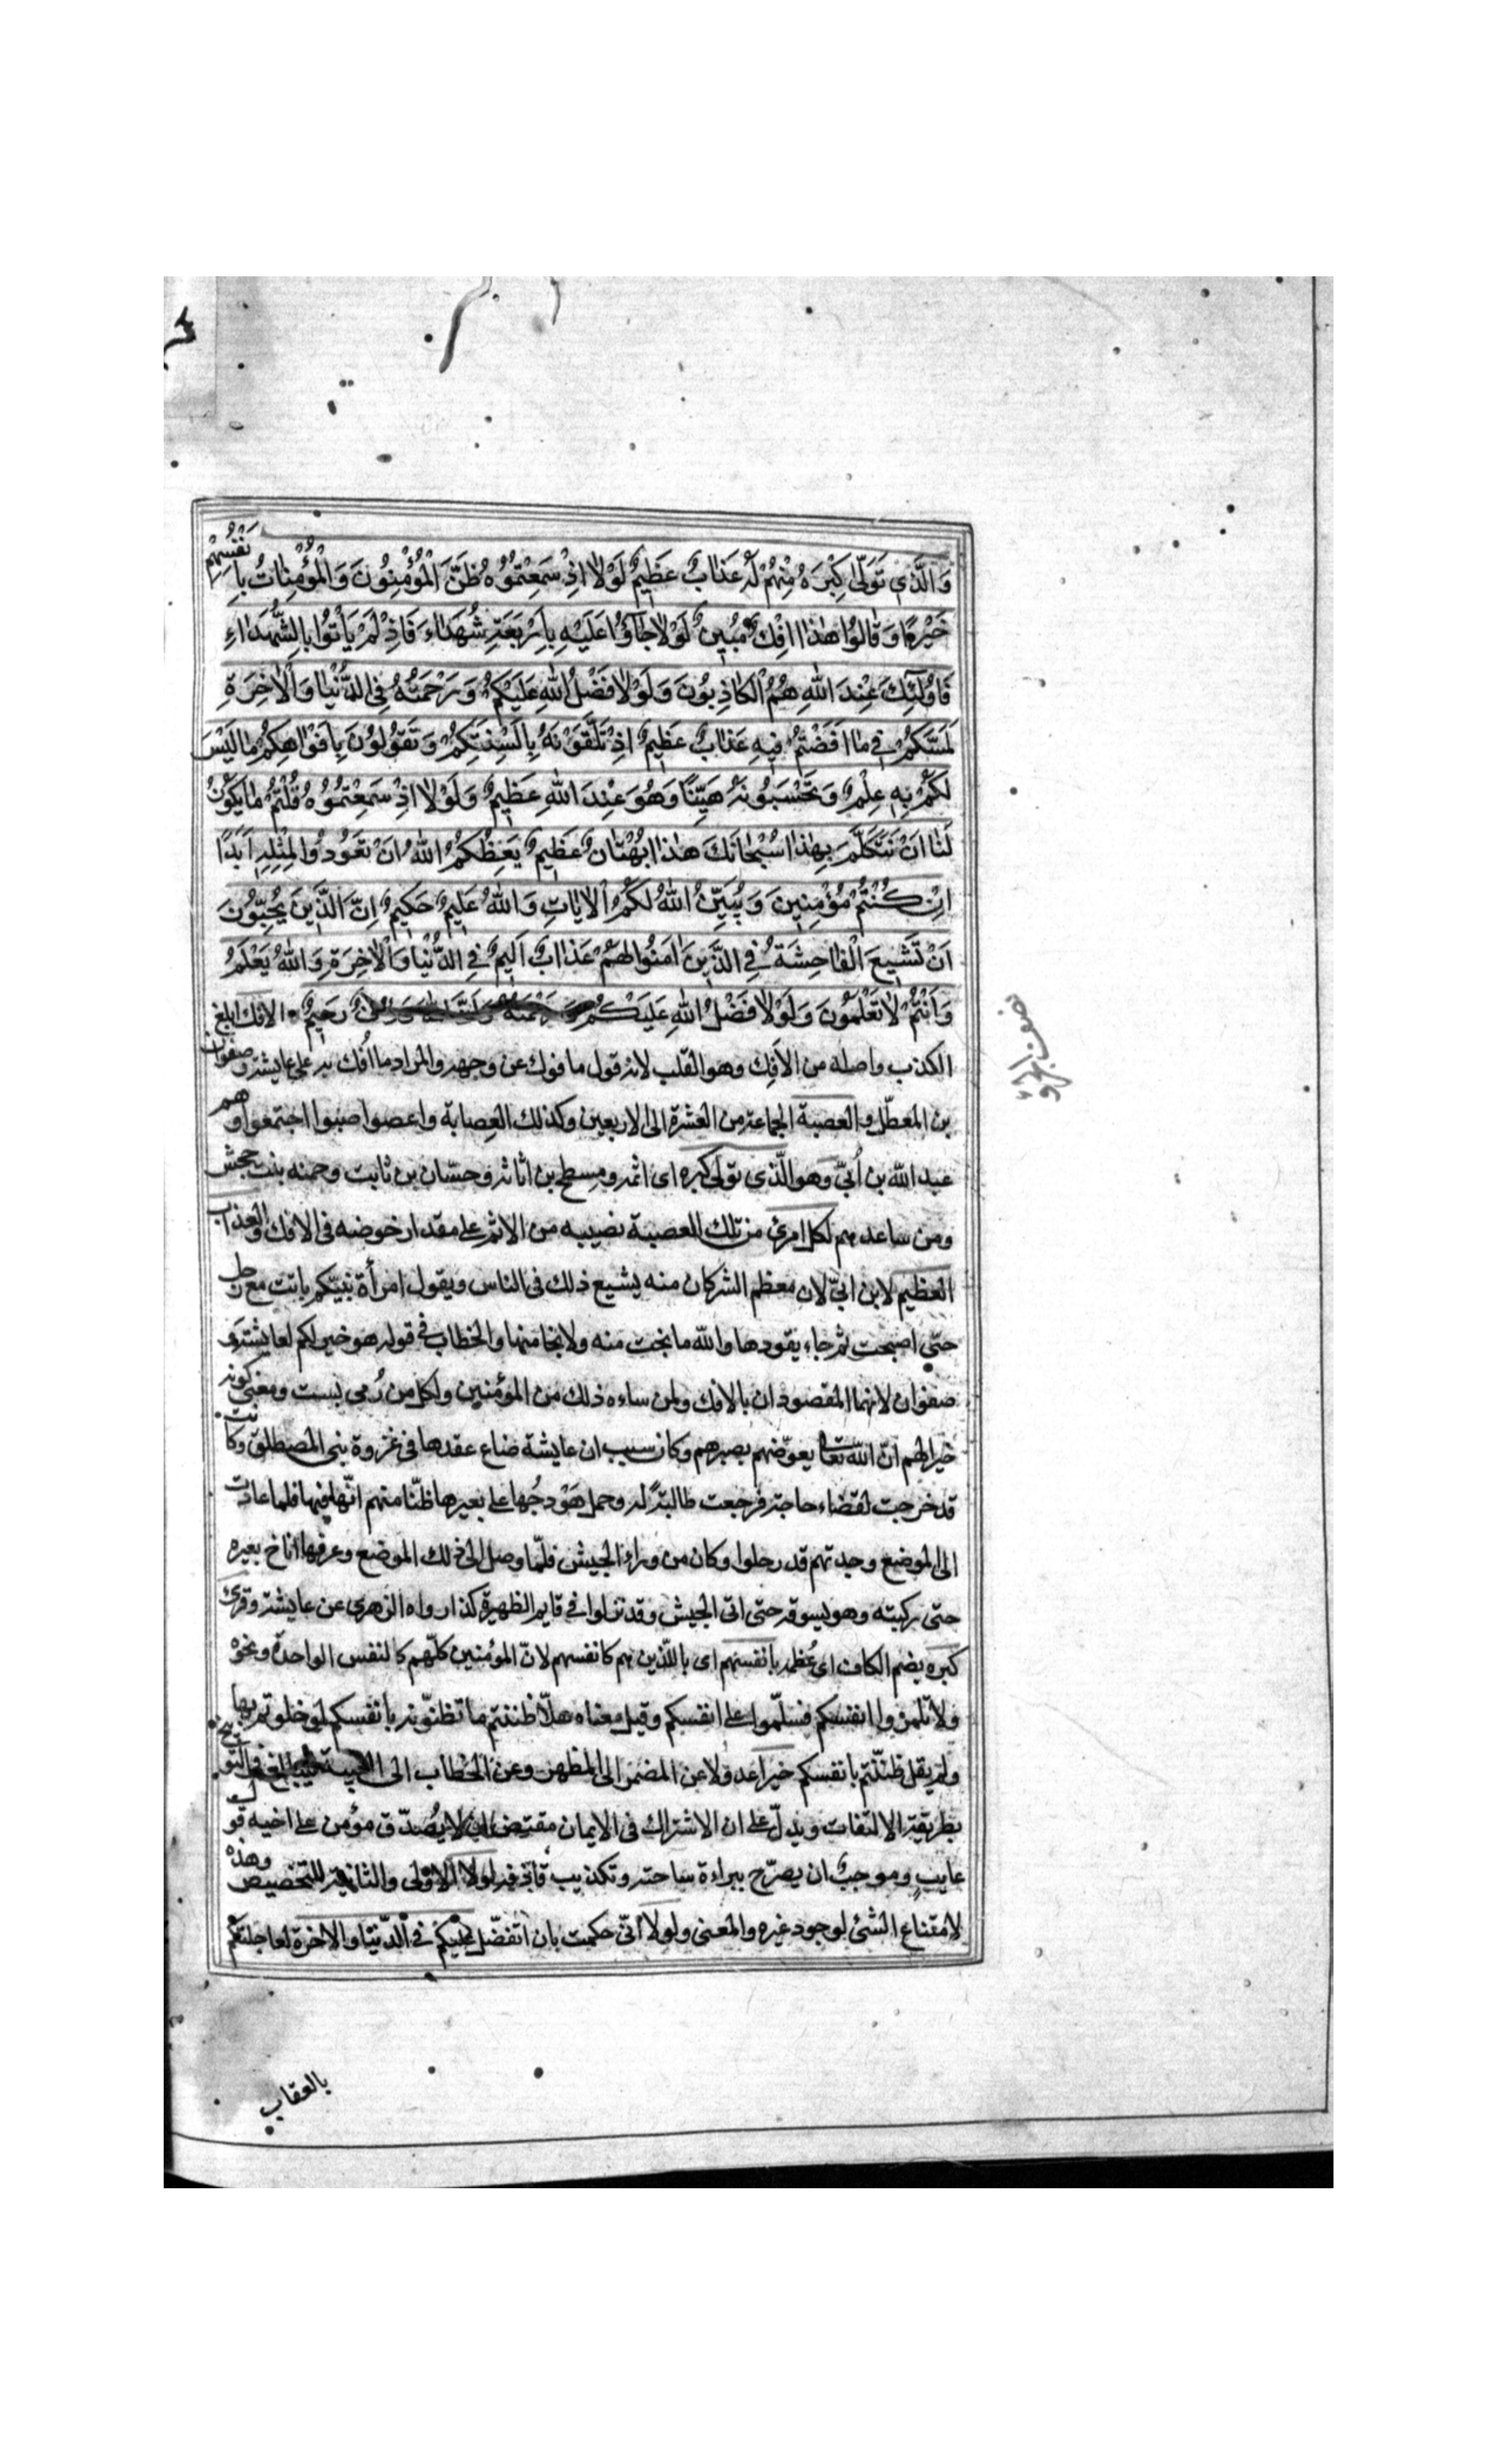 وَالَّذِي تَوَلّىٰ كِبْرَهُ مِنْهُمْ لَهُ عَذَابٌ عَظِيمٌ لَوْلَا اِذْ سَمِعْتُمُوهُ ظَنَّ الْمُؤْمِنُونَ وَالْمُؤْمِنَاتُ بِاَنْفُسِهِمْ
خَيْرًا وَقَالُوا هٰذَا اِفْكٌ مُبِينٌ لَوْلَا جَاؤُا عَلَيْهِ بِاَرْبَعَةِ شُهَدَاءَ فَاِذْ لَمْ يَأْتُوا بِالشُّهَدَاءِ
فَاُولٰئِكَ عِنْدَ اللهِ هُمُ الْكَاذِبُونَ وَلَوْلَا فَضْلُ اللهِ عَلَيْكُمْ وَرَحْمَتُهُ فِي الدُّنْيَا وَالْاٰخِرَةِ
لَمَسَّكُمْ فِي مَا اَفَضْتُمْ فِيهِ عَذَابٌ عَظِيمٌ اِذْ تَلَقَّوْنَهُ بِاَلْسِنَتِكُمْ وَتَقُولُونَ بِاَفْوَاهِكُمْ مَا لَيْسَ
لَكُمْ بِهِ عِلْمٌ وَتَحْسَبُونَهُ هَيِّنًا وَهُوَ عِنْدَ اللهِ عَظِيمٌ وَلَوْلَا اِذْ سَمِعْتُمُوهُ قُلْتُمْ مَا يَكُونُ
لَنَا اَنْ نَتَكَلَّمَ بِهٰذَا سُبْحَانَكَ هٰذَا بُهْتَانٌ عَظِيمٌ يَعِظُكُمُ اللهُ اَنْ تَعُودُوا لِمِثْلِهِ اَبَدًا
اِنْ كُنْتُمْ مُؤْمِنِينَ وَيُبَيِّنُ اللهُ لَكُمُ الْاٰيَاتِ وَاللهُ عَلِيمٌ حَكِيمٌ اِنَّ الَّذِينَ يُحِبُّونَ
اَنْ تَشِيعَ الْفَاحِشَةُ فِي الَّذِينَ اٰمَنُوا لَهُمْ عَذَابٌ اَلِيمٌ فِي الدُّنْيَا وَالْاٰخِرَةِ وَاللهُ يَعْلَمُ
وَاَنْتُمْ لَا تَعْلَمُونَ وَلَوْلَا فَضْلُ اللهِ عَلَيْكُمْ وَرَحْمَتُهُ وَاَنَّ اللهَ رَؤُفٌ رَحِيمٌ الافك ابلغ
الكذب واصله من الاَفِك وهو القلب لانه قول مافوك عن وجهه والمراد ما اُفك به على عايشة وصفوان
بن المعطّل والعصبة الجماعة من العشرة الى الاربعين وكذلك العِصابة واعصوا صبوا اجتمعوا وهم
عبد الله بن اُبيّ وهو الّذي تولى كبره اى اثمه ومِسطح بن اثاثه وحسّان بن ثابت وحمنه بنت جحش
ومن ساعدهم لكل امرئ من تلك العصبة نصيبه من الاثم على مقدار خوضه فى الافك والعذاب
العظيم لابن ابيّ لان معظم الشر كان منه يشيع ذلك فى الناس ويقول امرأة نبيّكم باتت مع رجل
حتّى اصبحت ثم جاء يقودها والله ما نجت منه ولا نجا منها والخطاب فى قوله هو خير لكم لعايشة و
صفوان لانهما المقصودان بالافك ولمن ساءه ذلك من المؤمنين ولكل من رُمى بسبّ ومعنى كونه
خيرا لهم انّ الله تعا يعوّضهم بصبرهم وكان سبب ان عايشة ضاع عقدها فى غزوة بنى المصطلق وكانت
قد خرجت لقضاء حاجة فرجعت طالبةً له وحمل هَوْدجُها على بعيرها ظنّا منهم انّها فيها فلما عادت
الى الموضع وجدتهم قد رحلوا وكان من وراء الجيش فلمّا وصل الى ذلك الموضع وعرفها اناخ بعيره
حتى ركبته وهو يسوقه حتى اتى الجيش وقد نزلوا فى قايم الظهيرة كذا رواه الزهرى عن عايشة وقرئ
كبره بضم الكاف اى عُظمه بانفسهم اى بالذّين هم كانفسهم لانّ المؤمنين كلّهم كالنفس الواحدة ونحوه
ولا تلمزوا انفسكم فسلّموا على انفسكم وقيل معناه هلّا ظننتم ما تظنّونه بانفسكم لو خلوتم بها
ولم يقل ظننّتم بانفسكم خيرا عدولا عن المضمر الى المظهر وعن الخطاب الى الغيبة ليبالغ فى التوبيخ
بطريقة الالتفات ويدلّ على ان الاشتراك فى الايمان مقتض ان لا يُصدّق مؤمن على اخيه قول
عايب وموجبٌ ان يصرّح ببراءة ساحته وتكذيب قاذفه لولا الاولى والثانية للتخصيص وهذه
لامتناع الشئ لوجود غيره والمعنى ولولا انّى حكمت بان اتفضّل عليكم فى الدّنيا والاخرة لعاجلتكم
بالعقاب